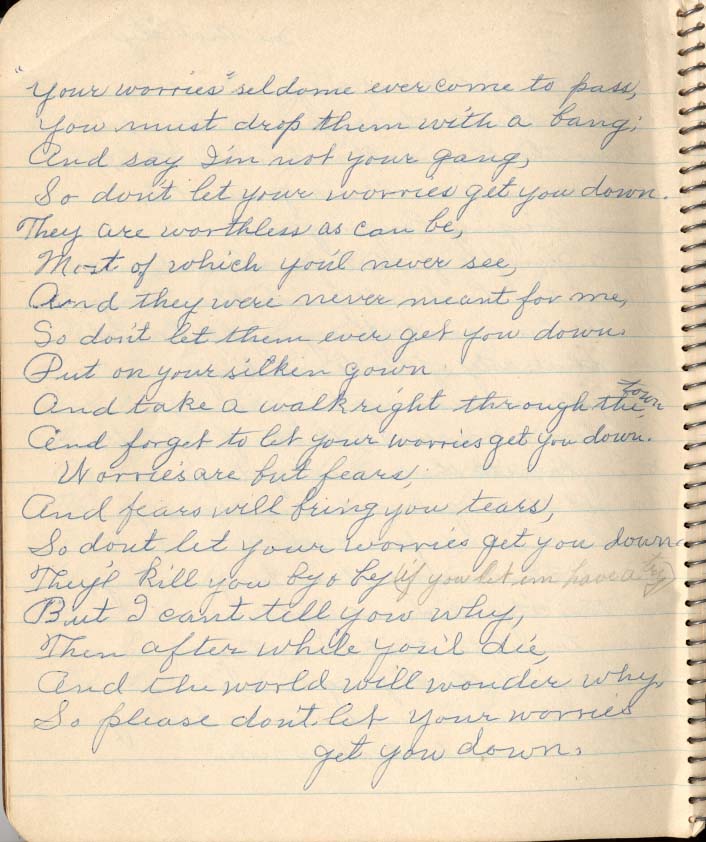 "Your worries" seldome ever come to pass,
You must drop them with a bang;
And say I'm not your gang,
So don't let your worries get you down.
They are worthless as can be,
Most of which you'l never see,
And they were never meant for me,
So don't let them ever get you down.
Put on your silken gown
And take a walk right through the town
And forget to let your worries get you down.
Worries are but fears,
And fears will bring you tears,
So dont let your worries get you down.
They'l kill you by o by (if you let em have a try)
But I can't tell you why,
Then after while you'l die,
And the world will wonder why.
So please dont let your worries
get you down.